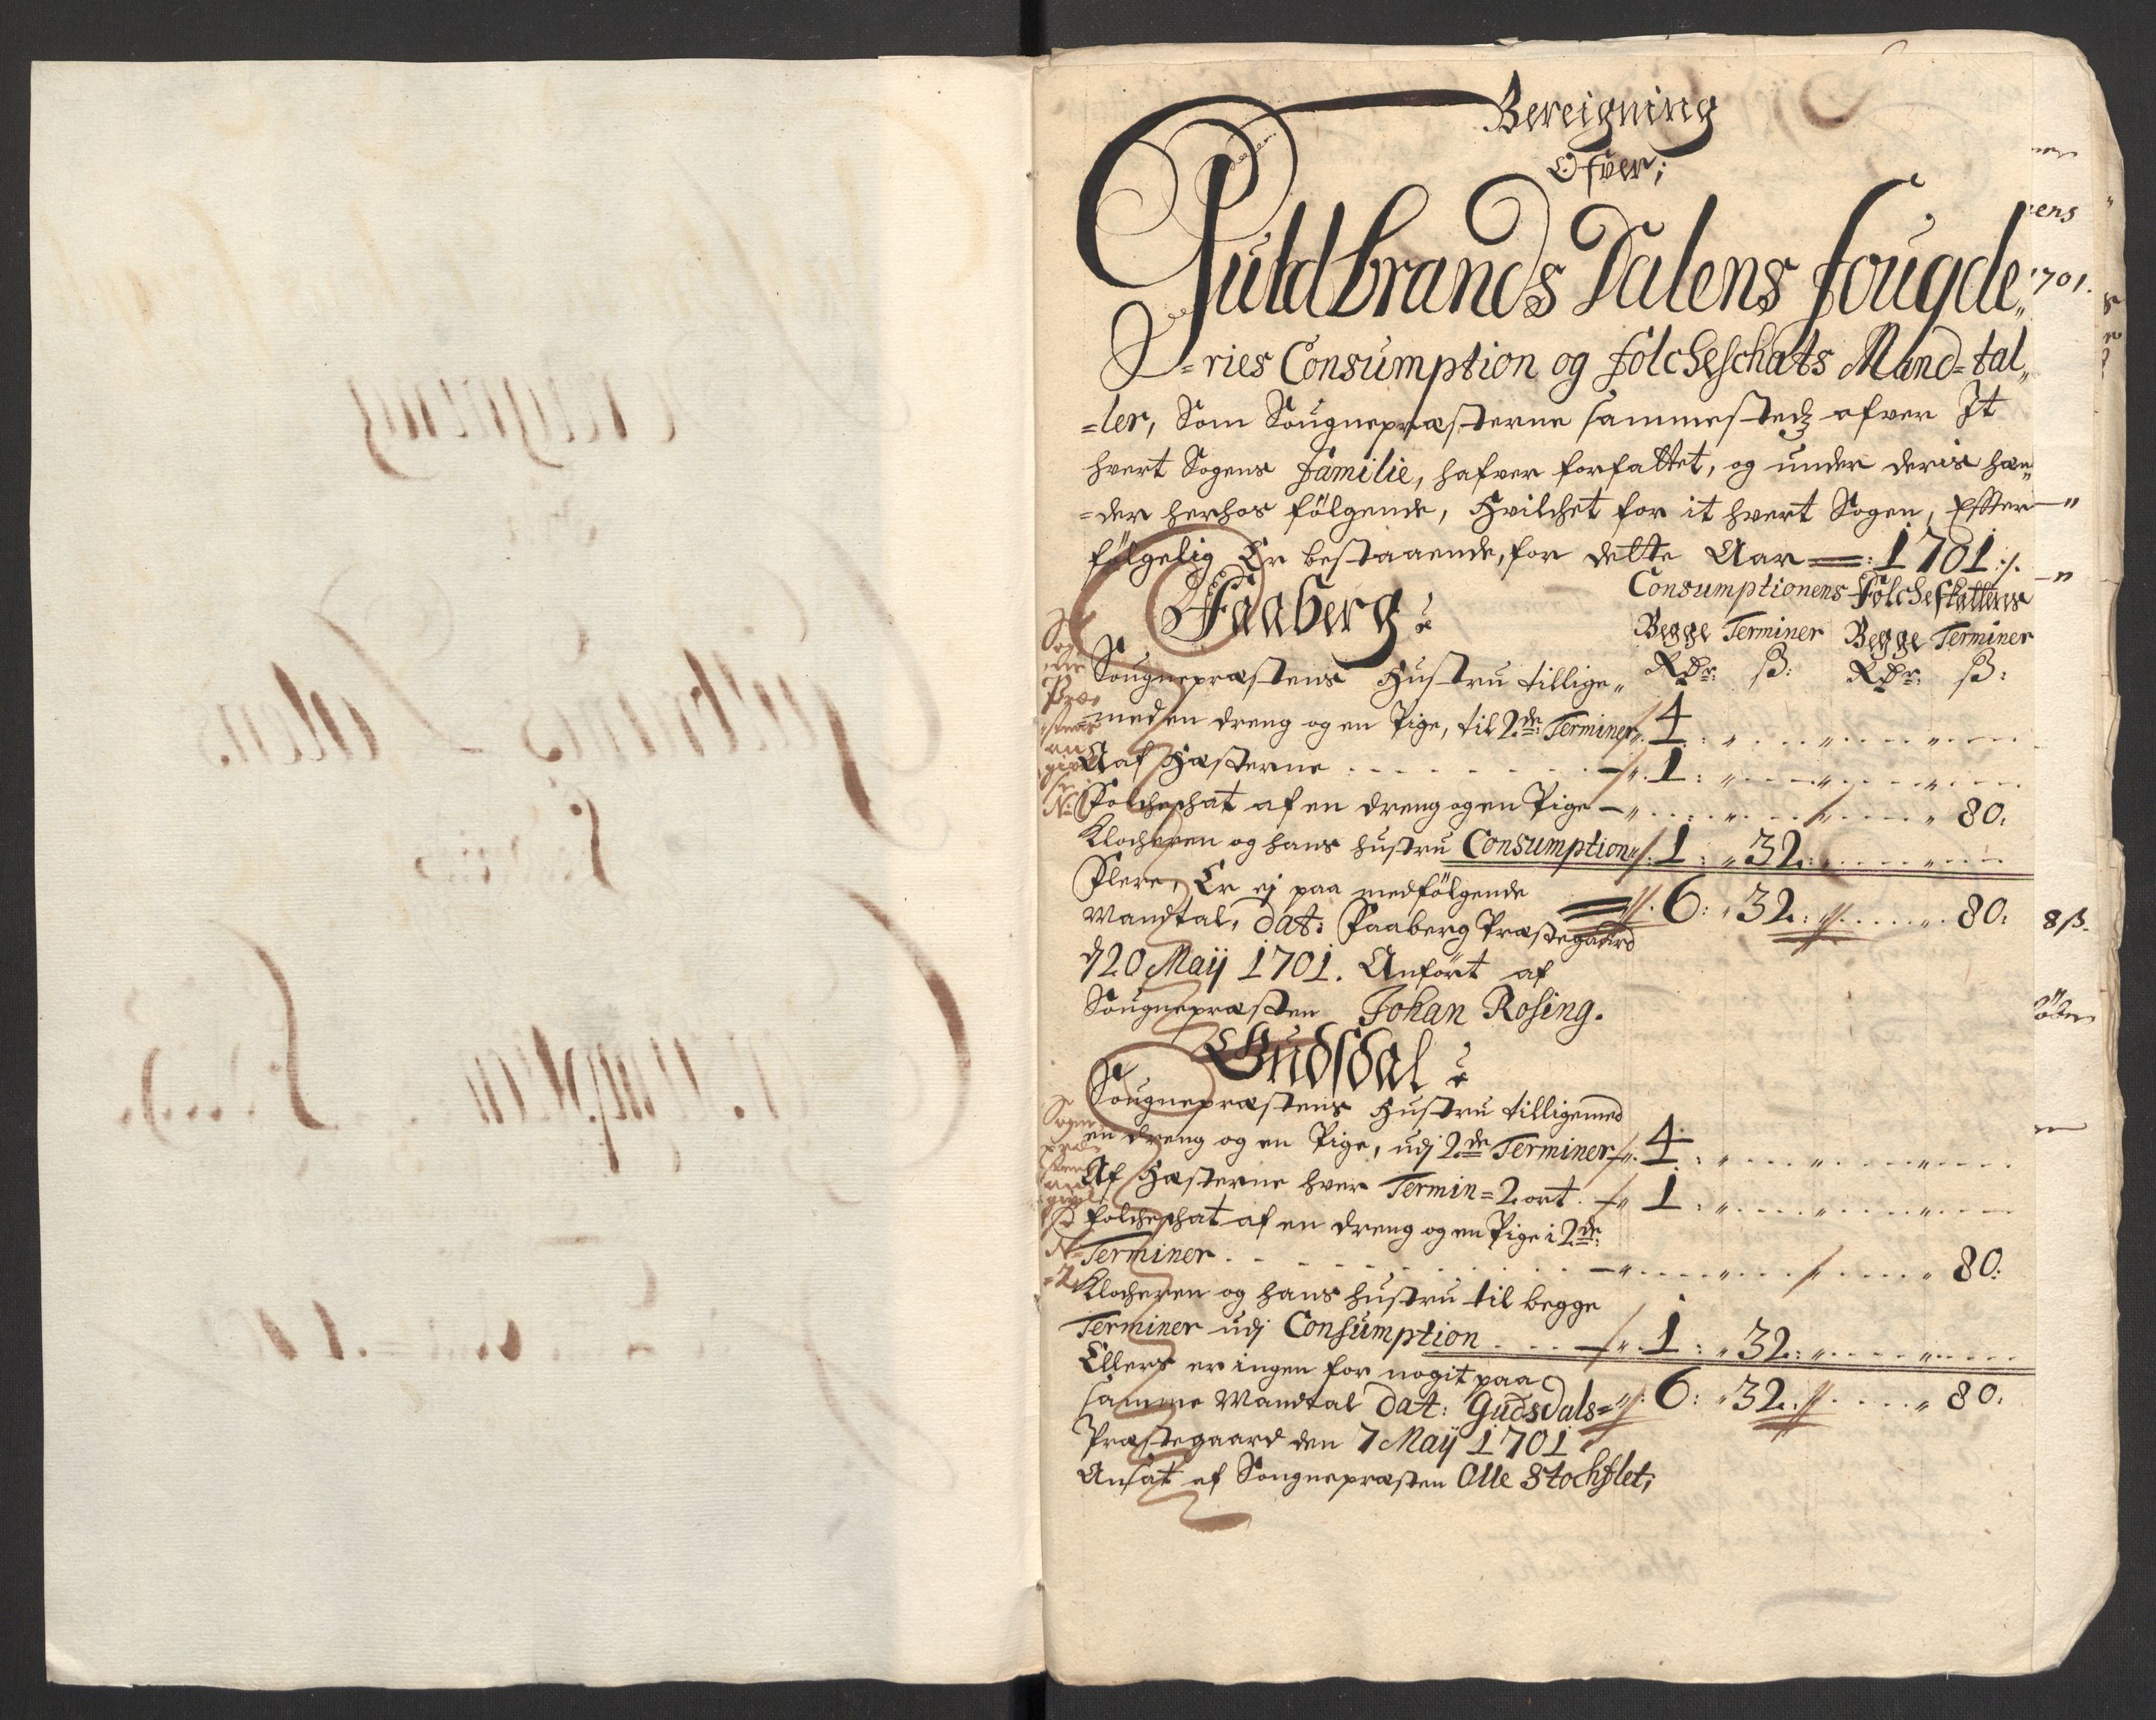 Bereigning
Ofver;
Guldbrands Dalens fougde„
=ries Consumption og folcheschats Mand=tal„
=ler, Som Sougnepræsterne sammestedz ofver It
hvert Sogens Familie, hafver forfattet, og under deris hæn„
=der herhos fölgende, Hvilchet for it hvert Sogen, Effter
fölgelig Er bestaaende, for dette Aar =: 1701 :/.
Consumptionens Folcheskattens
Faaberg:
Begge Terminer Begge Terminer
Rdr: ß: Rdr: ß:
Sougnepræstens Hustru tillige„
med en dreng og en Pige, til 2de: Terminer 4
Aaf Hæsterne 1:
Folcheschat af en dreng og en Pige 80:
Klocheren og hans hustru Consumption 1: 32:
Flere, Er ej paa medfölgende
Mandtal, dat: Faaberg Præstegaard 6: 32: 80:
d 20 Maij 1701. Anfört af
Sougnepræsten Johan Rosing.
Gudsdal:
Sougnepræstens Hustru tilligemed
en dreng og en Pige, udj 2de Terminer 4
Af Hæsterne hver Termin = 2 ort 1:
folcheschat af en dreng og en Pige i 2de:
Terminer 80:
Klocheren og hans hustru til begge
Terminer udj Consumption 1: 32:
Ellers er ingen for nogit paa
samme Mandtal dat: Gudsdals= 6: 32: 80:
Præstegaard den 7 Maij 1701
Ansat af Sougnepræsten Olle Stochflet;
1701.
8 ß.